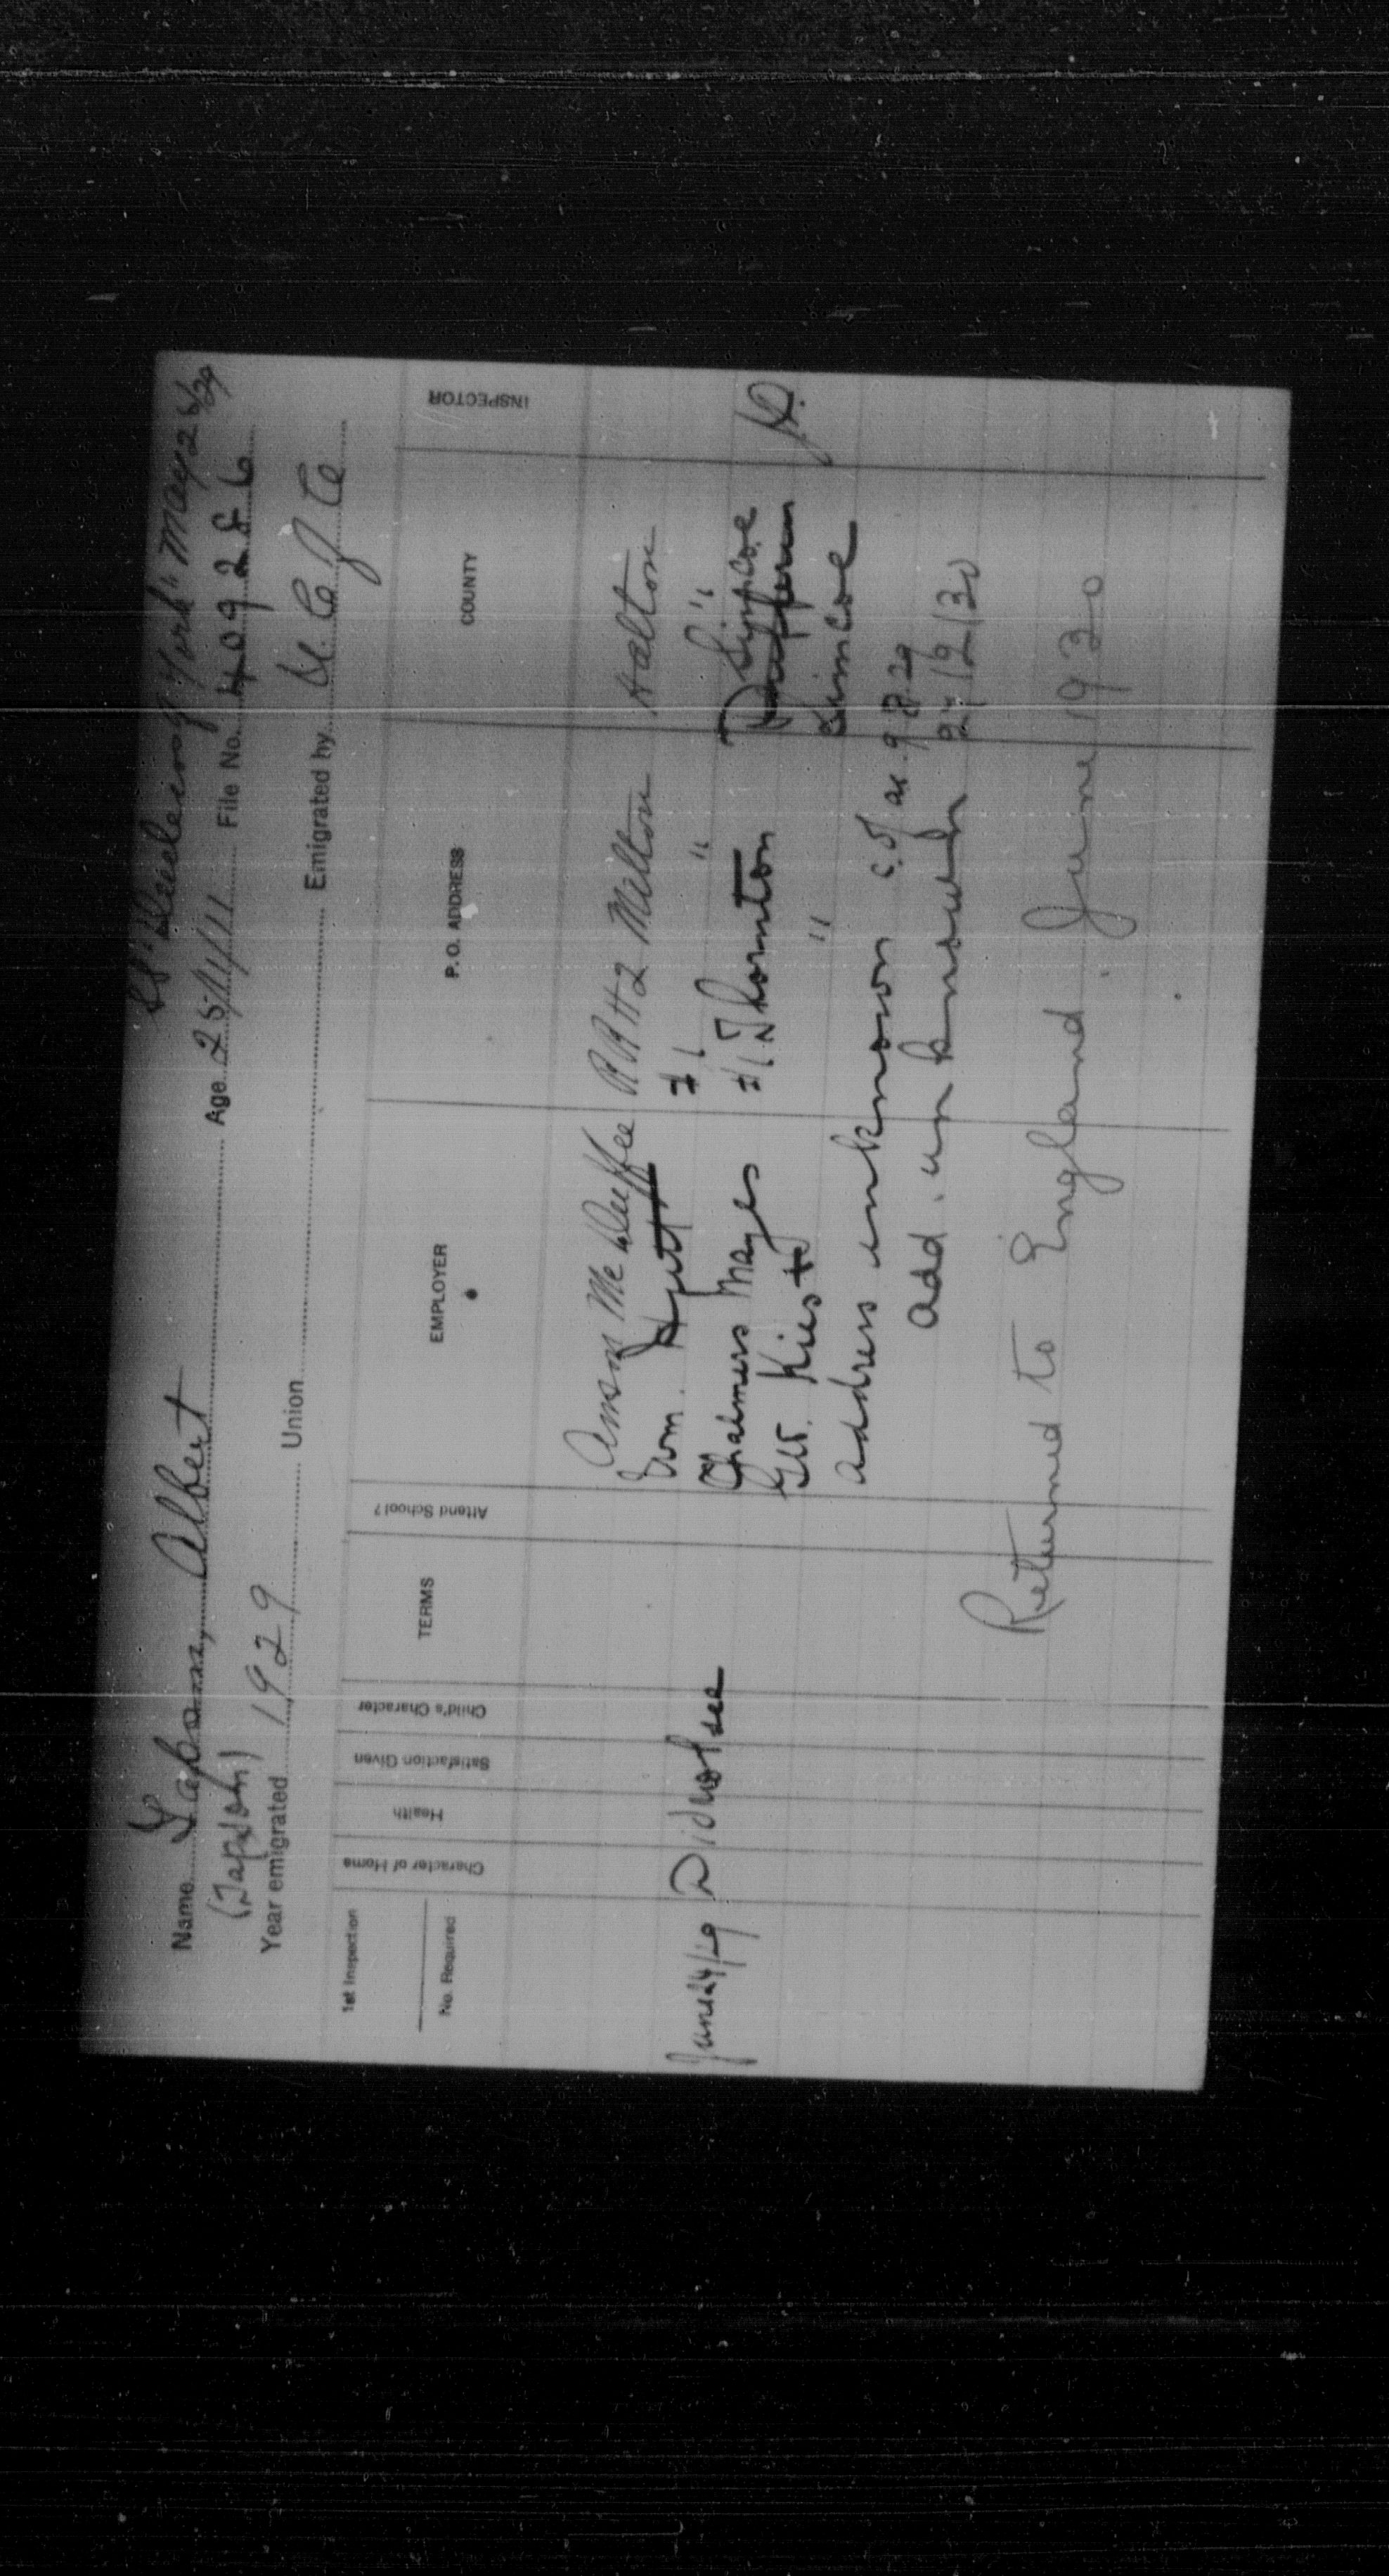 SS "Duchess of York" May 26/29
Name Tapson, Albert Age 25/1/11 File No. 409286
(Tapson)
Year emigrated 1929 Union Emigrated by U.C.J.Ca
1st Inspection
No. Required
Character of Home
Health
Satisfaction Given
Child's Character
TERMS
Attend School?
EMPLOYER
P. O. ADDRESS
COUNTY
INSPECTOR
Anson McDuffee RR#2 Milton Halton
Wm. #1 " "
June 24/29 Did not see Chalmers Mayes #1 Thornton Simcoe
Dufferin
Geo. " Simcoe
Address unknown c.of a. 9.8.29
add. unknown 9/12/30
Returned to England June 1930